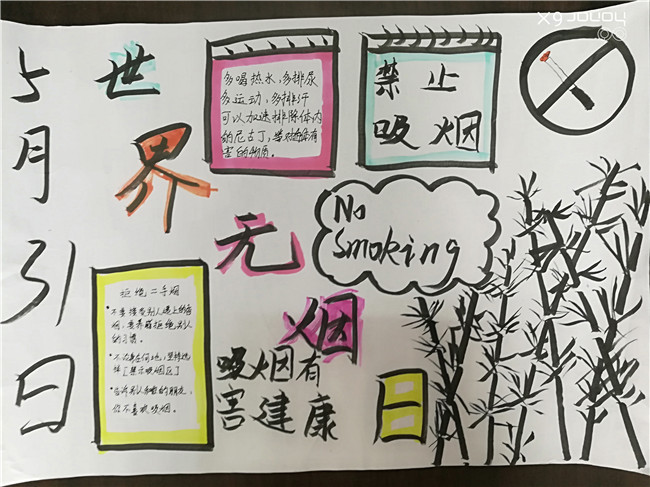 5月31日
世界无烟日
多喝热水,多排尿
多运动,多排汗
可以加速排除体内
的尼古丁,等对身体有
害的物质。
禁止
吸烟
No
Smoking
拒绝二手烟
•不要接受别人递上的香
烟,要养成拒绝别人
的习惯。
•不论在任何地,坚持选
择[禁示吸烟区]
•告诉别人和的朋友,
你不喜欢吸烟。
吸烟有
害建康